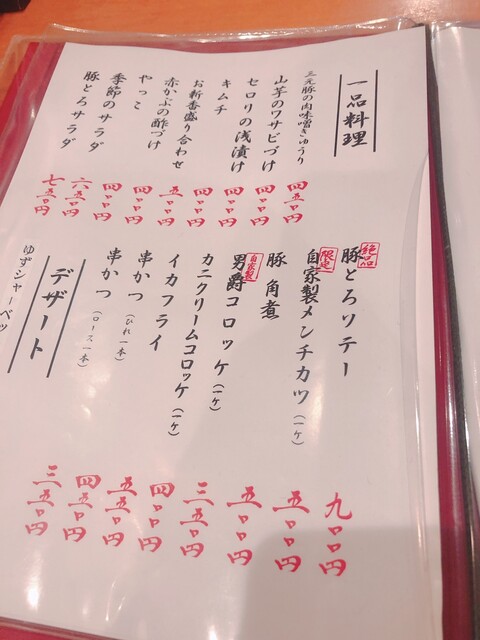 一品料理
三元豚の肉味噌きゅうり 四五〇円
山芋のワサビづけ 四〇〇円
セロリの浅漬け 四〇〇円
キムチ 四〇〇円
お新香盛り合わせ 五〇〇円
赤かぶの酢づけ 四〇〇円
やっこ 四〇〇円
季節のサラダ 六五〇円
豚とろサラダ 七五〇円
絶品
豚とろソテー 九〇〇円
限定
自家製メンチカツ(一ケ) 五〇〇円
豚角煮 五〇〇円
自家製
男爵コロッケ(一ケ) 三五〇円
カニクリームコロッケ(一ケ) 四〇〇円
イカフライ 五五〇円
串かつ(ひれ一本) 四五〇円
串かつ(ロース一本) 三五〇円
デザート
ゆずシャーベッ